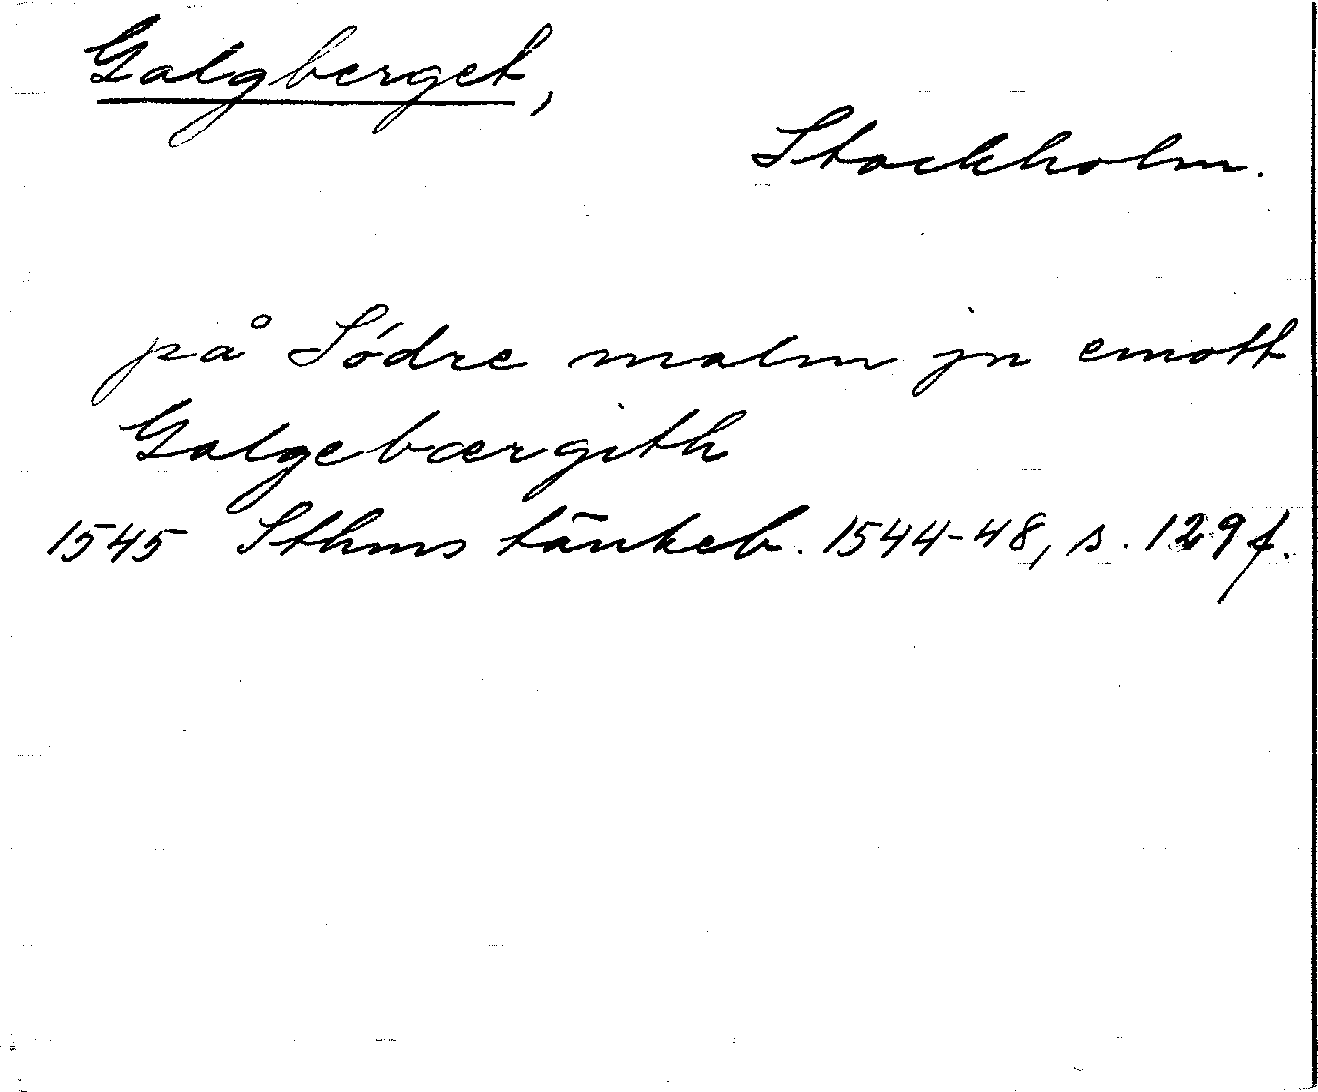 Galgberget,
Stockholm.
på Södre malm jn emott
Galgebærgith
1545 Sthms tänkeb. 1544-48, s. 129 f.